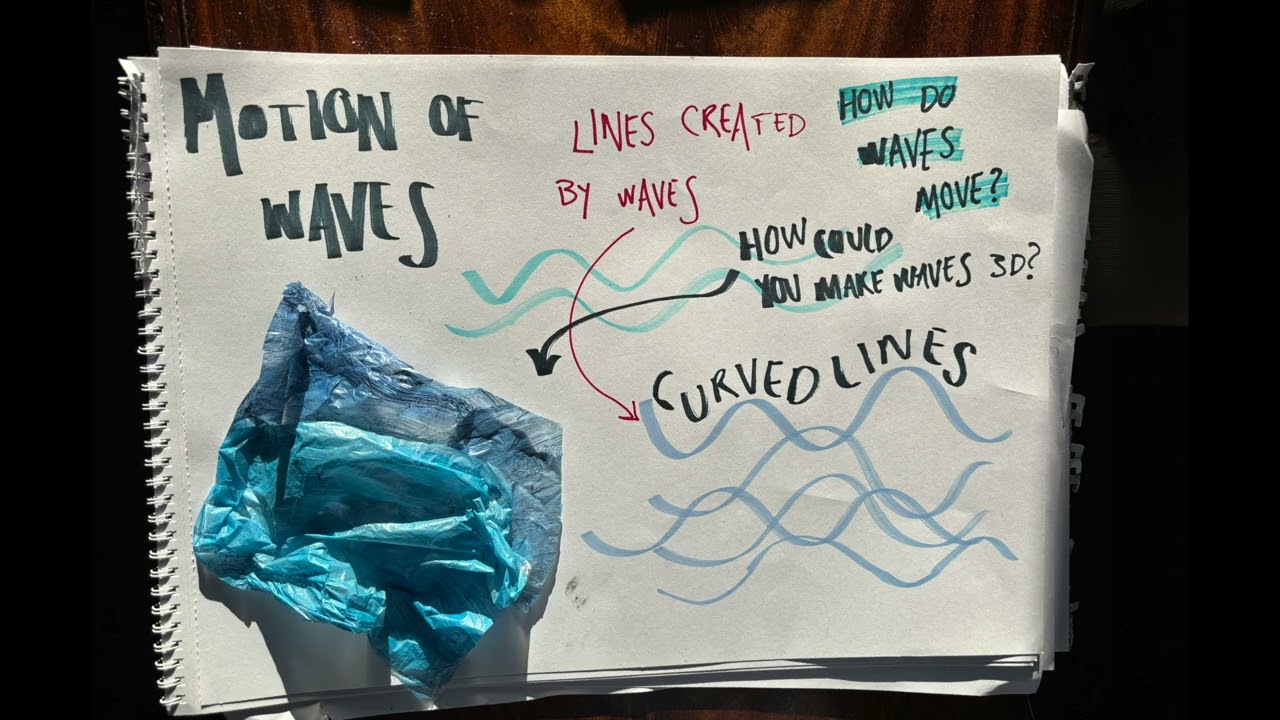 MOTION OF
WAVES
LINES CREATED
BY WAVES
HOW DO
WAVES
MOVE?
HOW COULD
YOU MAKE WAVES 3D?
CURVED LINES